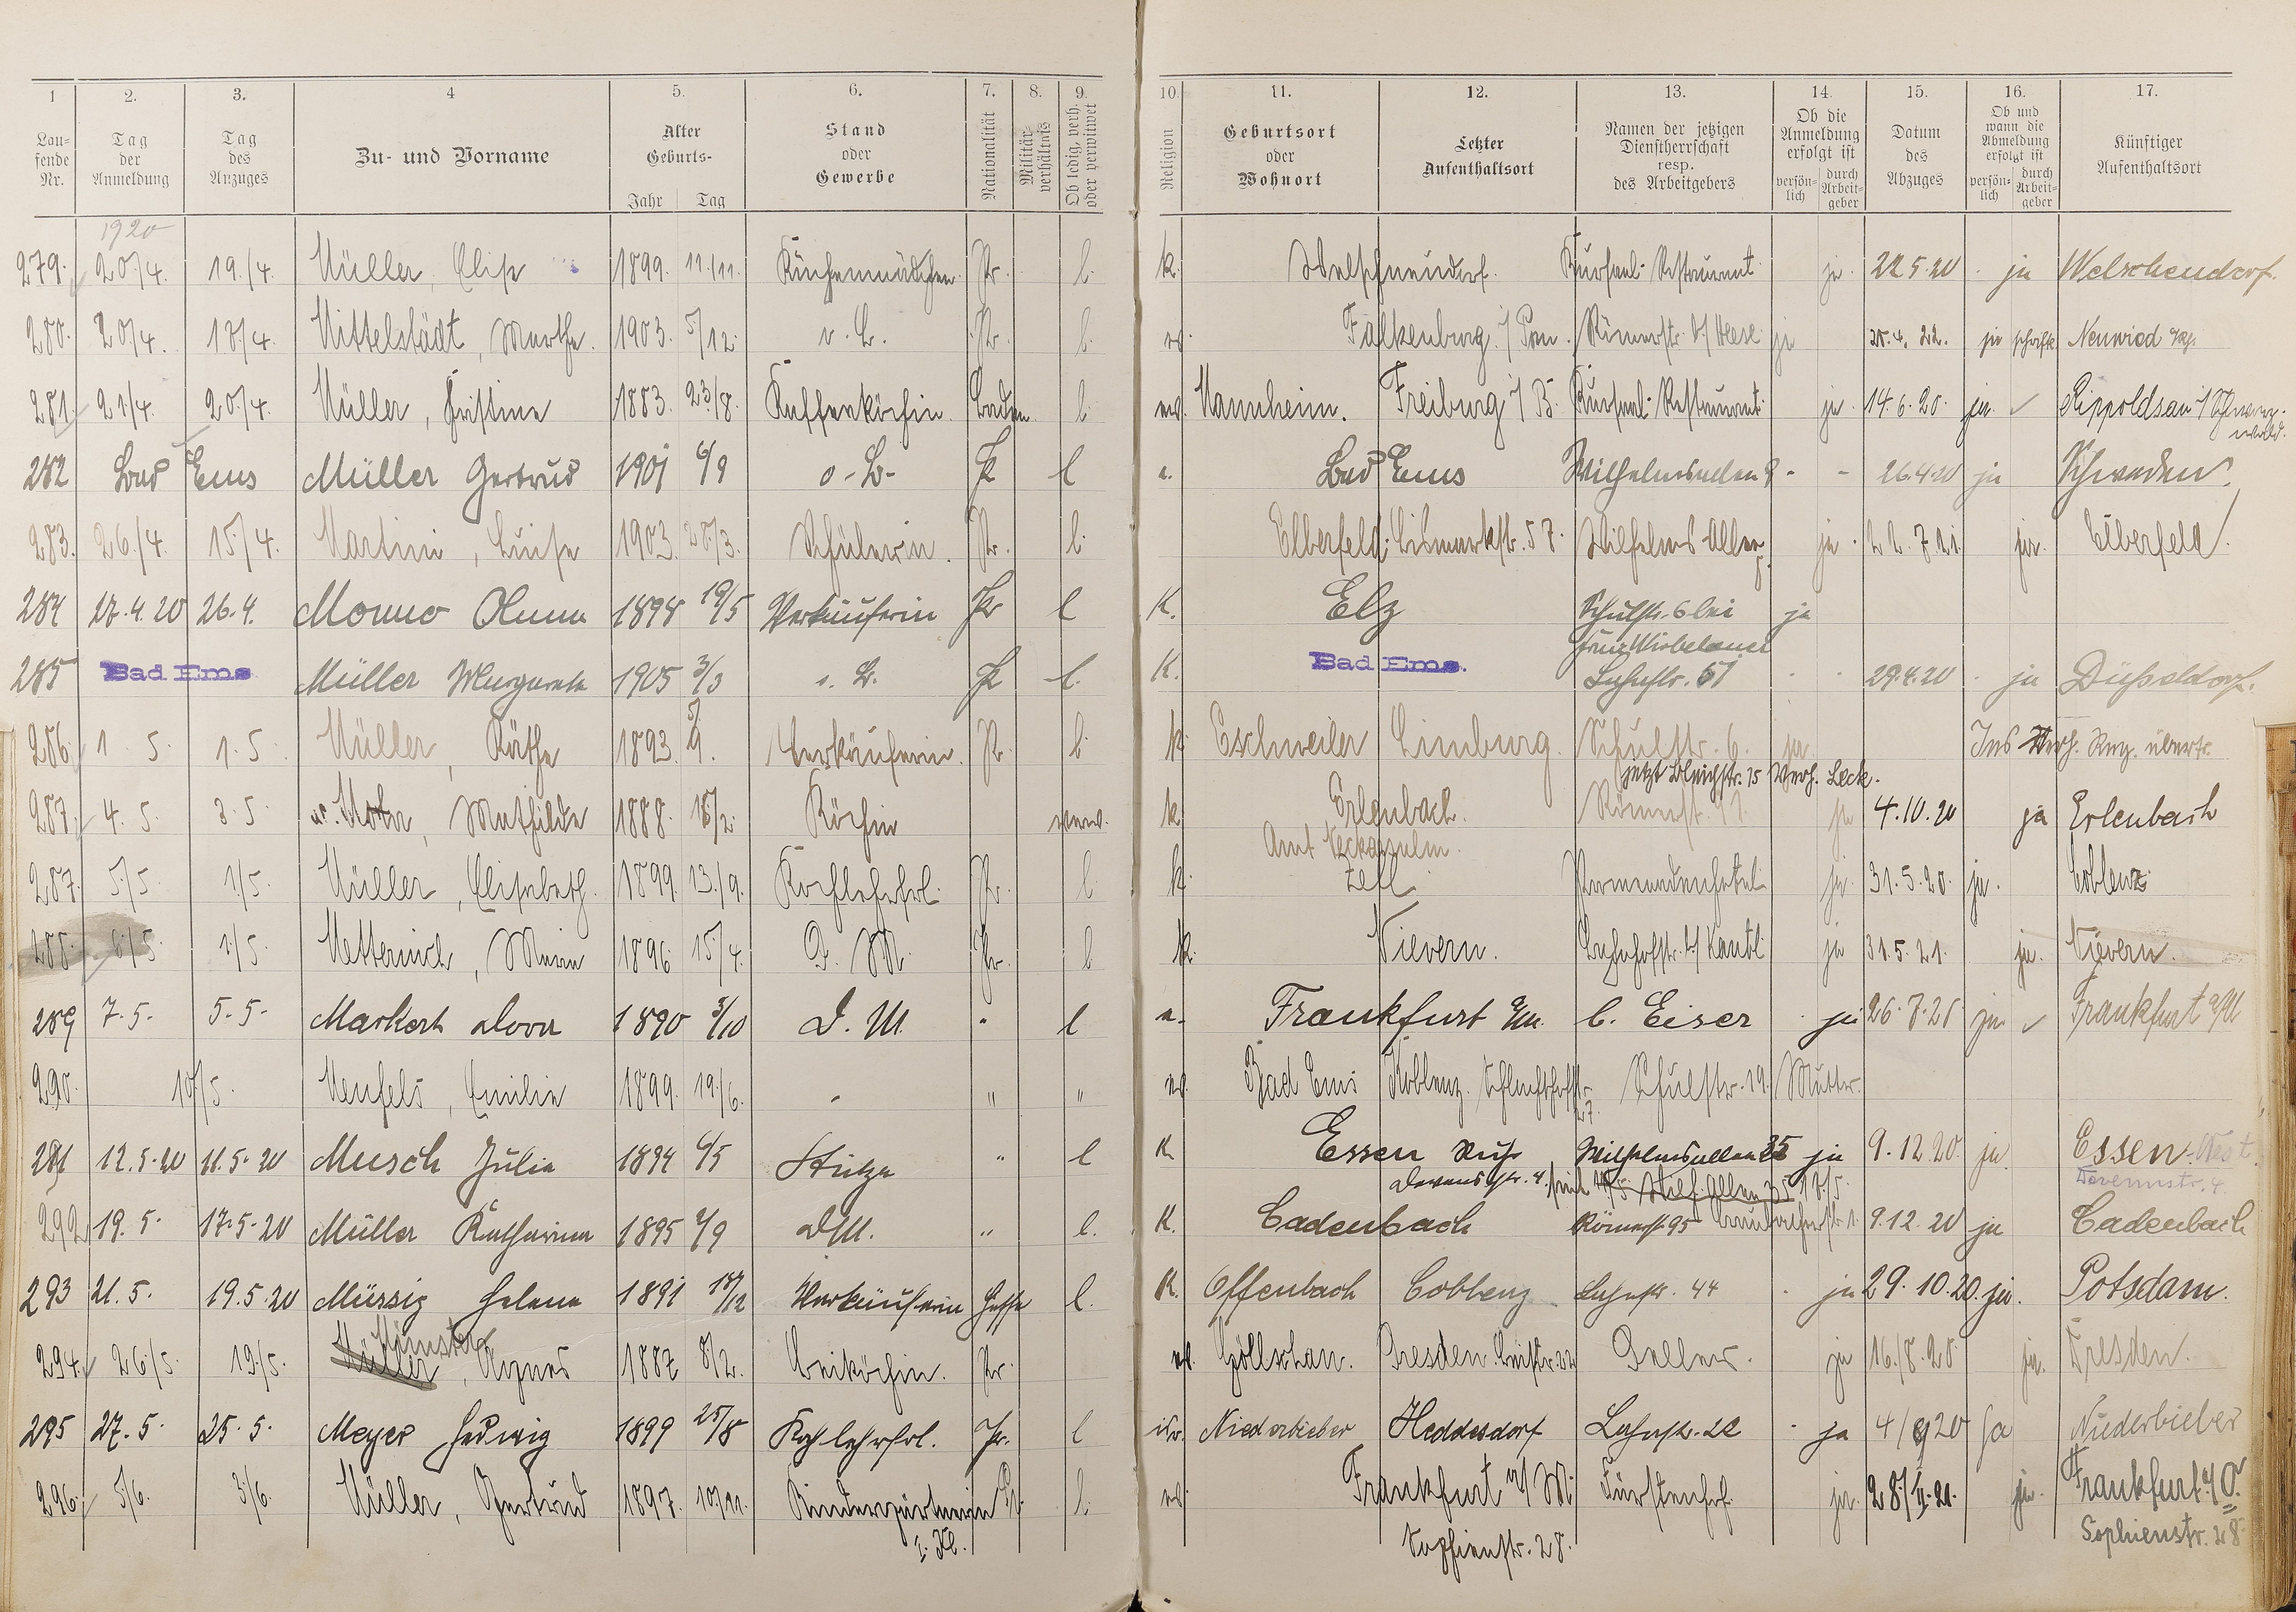 1 2. 3. 4 5. 6. 7. 8. 9. 10. 11. 12. 13. 14. 15. 16. 17.
Lau-
fende
Nr.
Tag
der
Anmeldung
Tag
des
Anzuges
Zu- und Vorname
Alter
Geburts-
Jahr Tag
Stand
oder
Gewerbe
Nationalität
Militär-
verhältnis
Ob ledig, verh.
oder verwitwet
Religion
Geburtsort
oder
Wohnort
Letzter
Aufenthaltsort
Namen der jetzigen
Dienstherrschaft
resp.
des Arbeitgebers
Ob die
Anmeldung
erfolgt ist
persön-
lich
durch
Arbeit-
geber
Datum
des
Abzuges
Ob und
wann die
Abmeldung
erfolgt ist
persön-
lich
durch
Arbeit-
geber
Künftiger
Aufenthaltsort
1920
279. 20./4. 19./4. Müller, Elise 1899. 11./11. Küchenmädchen Pr. l. k. Welschneudorf. Kursaal-Restaurant ja. 22.5.20 ja Welschendorf.
280. 20./4. 18./4. Mittelstädt, Marthe. 1903. 5/12. o. B. Pr. l. ev. Falkenburg i/ Pom. Römerstr. b/ Heese ja 25.4.22. ja schriftl. Neuwied
281. 21./4. 20./4. Müller, Kristine 1883. 23./8. Kaffeeköchin. Baden. l. ev. Mannheim. Freiburg i/ B. Kursaal-Restaurant ja. 14.6.20. ja. Rippoldsau i/ Schwarz-
wald.
282 Bad Ems Müller Gertrud 1901 6/9 o. B. Pr l e. Bad Ems Wilhelmsallee 8 - - 26.4.20 ja Schweden.
283. 26./4. 15./4. Martini, Luise 1903. 28./3. Schülerin. Pr. l. Elberfeld. Bismarkstr. 57. Wilhelms-Allee ja. 22.7.21. ja. Elberfeld.
284 27.4.20 26.4. Monno Anna 1898 19/5 Verkäuferin Pr l K. Elz Schulstr. 6 bei ja
Frau Wirbelauer
285 Bad Ems Müller Margarete 1905 3/3 o. B. Pr l. K. Bad Ems. Lahnstr. 51 29.4.20 ja Düsseldorf.
286. 1.5. 1.5. Müller, Käthe 1893. 5./9. Verkäuferin. Pr. l. k. Eschweiler Limburg. Schulstr. 6. ja Ins Verh. Reg. übertr.
jetzt Bleichstr. 15 Verh. Leck.
287. 4.5. 3.5. Mathilde 1888. 18/2. Köchin verw. k Erlenbach. Römerstr. ja 4.10.20 ja Erlenbach
Amt Neckarsulm.
287. 5./5. 1/5. Müller, Elisabeth. 1899. 13./9. Kochlehrfrl. Pr. l. k. Zell. ja. 31.5.20. ja. Coblenz
288. 6./5. 1./5. Metternich, Maria 1896. 15/4. D. M. Pr. l k. Nievern. Bahnhofstr. b/ ja 31.5.21. ja. Nievern.
289 7.5. 5.5. Markert Dora 1890 3/10 D. M. " l e. Frankfurt a/m. b. Eiser ja 26.7.21 ja Frankfurt a/M
290. 10/5. Menfels, Emilie 1899. 19./6. " " ev. Bad Ems Koblenz. Schulstr. 19. Mutter.
291 12.5.20 11.5.20 Musch Julie 1894 6/5 Stütze " l K Essen Ruhr Wilhelmsallee 35 ja 9.12.20. ja. Essen-West.
292 19.5. 17.5.20 Müller Katharina 1895 2/9 DM. " l. K. Cadenbach Römerstr 95 9.12.20 ja Cadenbach
293 21.5. 19.5.20 Müssig Helene 1891 18/12 Verkäuferin Hesse l. K. Offenbach Coblenz Lahnstr. 44 ja 29.10.20. ja. Potsdam.
Münster
294. 26./5. 19./5. Müller, Agnes 1887 8/2. Beiköchin. Pr. ev. Göllschau. Dresden. ja 16./8.20. ja. Dresden.
295 27.5. 25.5. Meyer Hedwig 1899 25/8 Kochlehrfrl. Pr. l ev. Niederbieber Heddesdorf Lahnstr. 22 ja 4/9 20 ja Niederbieber
296. 5/6. 3/6. Müller, Gertrud 1897. 10./11. Kindergärtnerin Pr. l. ev. Frankfurt a/ M. Fürstenhof. ja. 28./II.21. ja. Frankfurt a/ O.
I. Kl. Sophienstr. 28. Sophienstr. 28